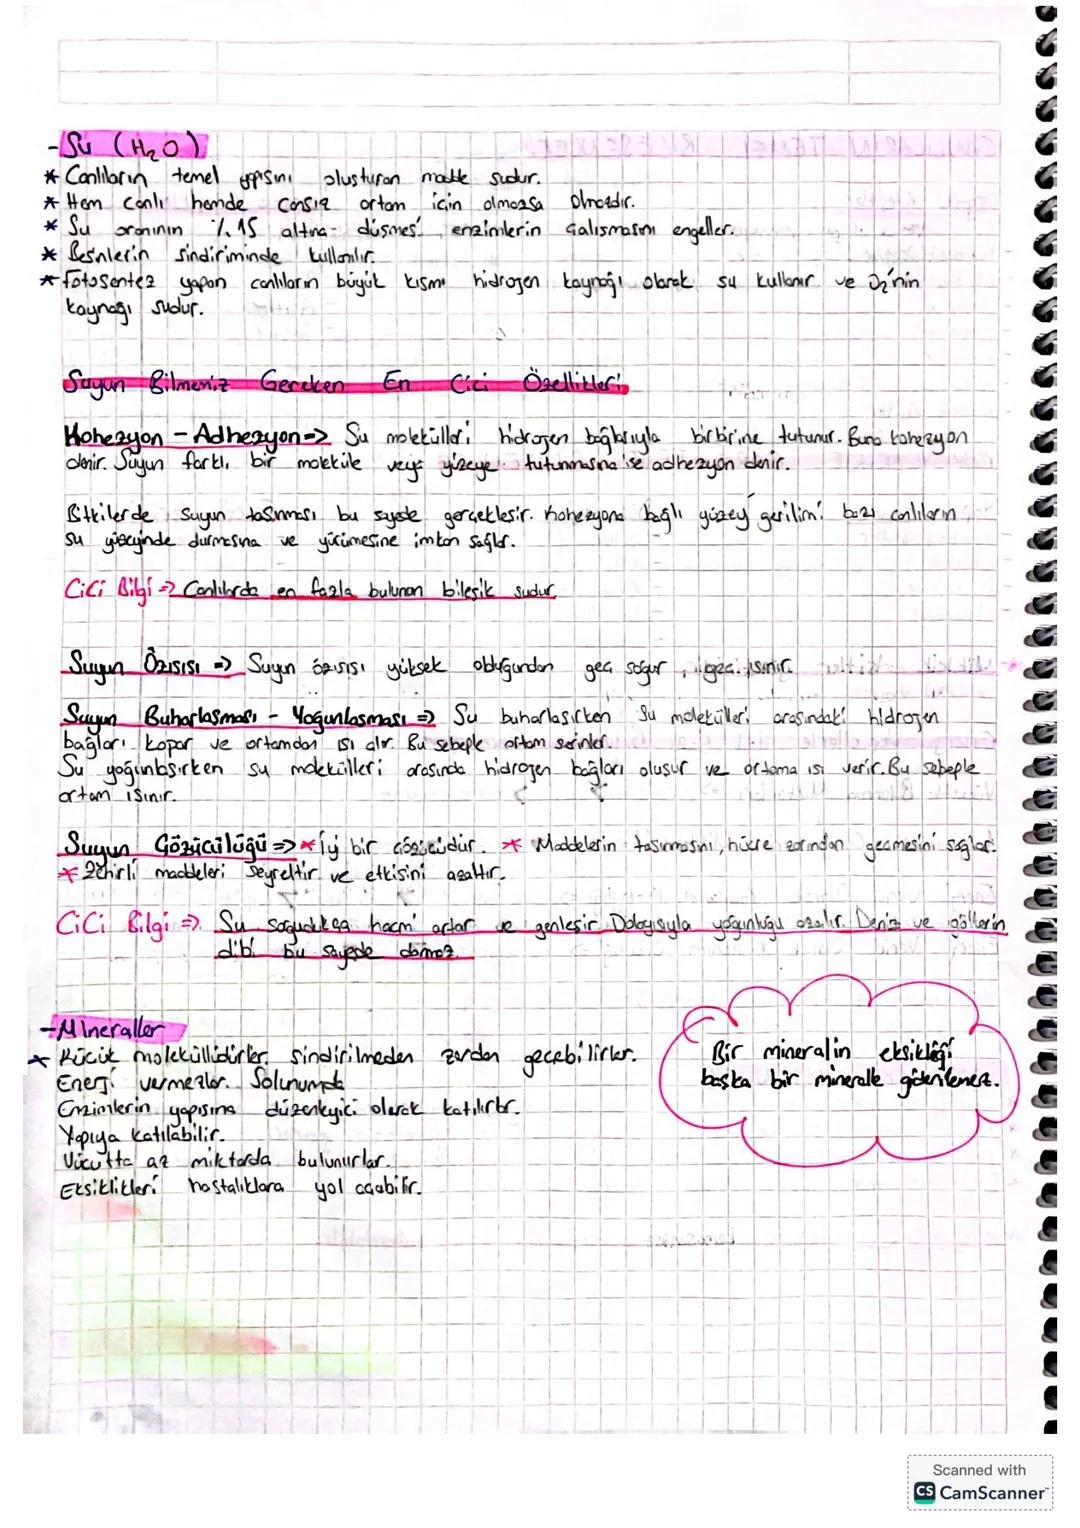 -Su (H₂O)
* Canlıların temel yapısını oluşturan madde sudur.
* Hem canlı hemde cansız ortam için olmazsa olmazdır.
* Su oranının %15 altına düşmesi enzimlerin çalışmasını engeller.
* Besinlerin sindiriminde kullanılır.
* Fotosentez yapan canlıların büyük kısmı hidrojen kaynağı olarak su kullanır ve O₂'nin
kaynağı sudur.
Suyun Bilmeniz Gereken En Cici Özellikleri
Kohezyon - Adhezyon => Su molekülleri hidrojen bağlarıyla birbirine tutunur. Buna kohezyon
denir. Suyun farklı bir moleküle veya yüzeye tutunmasına ise adhezyon denir.
Bitkilerde suyun taşınması bu sayede gerçekleşir. Kohezyona bağlı yüzey gerilimi bazı canlıların
su yüzeyinde durmasına ve yürümesine imkan sağlar.
Cici Bilgi => Canlılarda en fazla bulunan bileşik sudur
Suyun Özısısı => Suyun özısısı yüksek olduğundan geç soğur, geç ısınır.
Suyun Buharlaşması - Yoğunlaşması => Su buharlaşırken su molekülleri arasındaki hidrojen
bağları kopar ve ortamdan ısı alır. Bu sebeple ortam serinler.
Su yoğunlaşırken su molekülleri arasında hidrojen bağları oluşur ve ortama ısı verir. Bu sebeple
ortam ısınır.
Suyun Çözücülüğü => * İyi bir çözücüdür. * Maddelerin taşınmasını, hücre zarından geçmesini sağlar.
* Zehirli maddeleri seyreltir ve etkisini azaltır.
CiCi Bilgi => Su soğudukça hacmi artar ve genleşir. Dolayısıyla yoğunluğu azalır. Deniz ve göllerin
dibi bu sayede donmaz.
-Mineraller
* Küçük moleküllüdürler, sindirilmeden zardan geçebilirler.
Enerji vermezler. Solunumda
Enzimlerin yapısına düzenleyici olarak katılırlar.
Yapıya katılabilir.
Vücutta az miktarda bulunurlar.
Eksiklikleri hastalıklara yol açabilir.
Bir mineralin eksikliği
başka bir mineralle giderilemez.
Scanned with
CS CamScanner